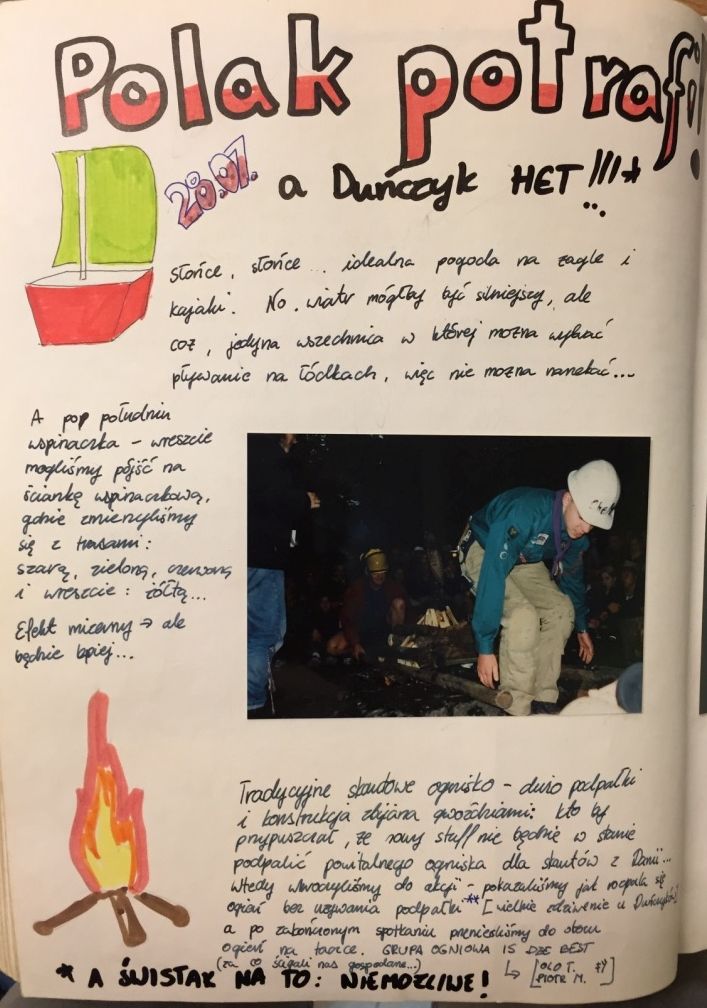 Polak potrafi!
28.07.
a Duńczyk HET!!!*
Słońce, słońce... idealna pogoda na żagle i
kajaki. No, wiatr mógłby być silniejszy, ale
coż, jedyna wszechnica w której można wybrać
pływanie na łódkach, więc nie można narzekać...
A pop południu
wspinaczka – wreszcie
mogliśmy pójść na
ściankę wspinaczkową,
gdzie zmierzyliśmy
się z trasami:
szarą, zieloną, czerwoną
i wreszcie: żółtą...
Efekt mizerny → ale
będzie lepiej...
Tradycyjne skautowe ognisko – dużo podpałki
i konstrukcja zbijana gwoździami: kto by
przypuszczał, że nowy staff nie będzie w stanie
podpalić powitalnego ogniska dla skautów z Danii...
wtedy wkroczyliśmy do akcji – pokazaliśmy jak rozpala się
ogień bez używania podpałki ** [wielkie zdziwienie u Duńczyków]
a po zakończonym spotkaniu przenieśliśmy do obozu
ogień na tacce. GRUPA OGNIOWA IS DZE BEST
(za co ścigali nas gospodarze...)
↳ [OLO T.
PIOTR M.]
* A ŚWISTAK NA TO: NIEMOŻLIWE!